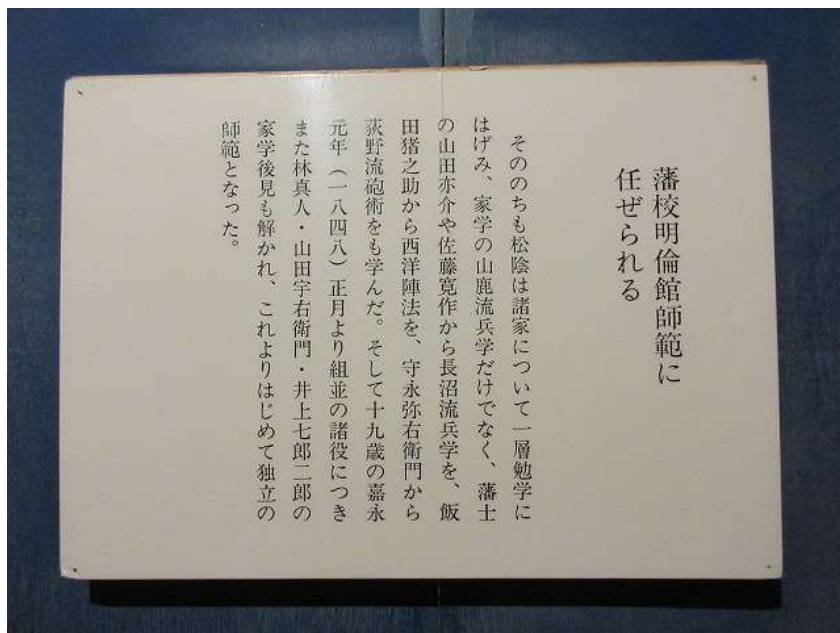 藩校明倫館師範に
任ぜられる
そののちも松陰は諸家について一層勉学に
はげみ、家学の山鹿流兵学だけでなく、藩士
の山田亦介や佐藤寛作から長沼流兵学を、飯
田猪之助から西洋陣法を、守永弥右衛門から
荻野流砲術をも学んだ。そして十九歳の嘉永
元年（一八四八）正月より組並の諸役につき
また林真人・山田宇右衛門・井上七郎二郎の
家学後見も解かれ、これよりはじめて独立の
師範となった。